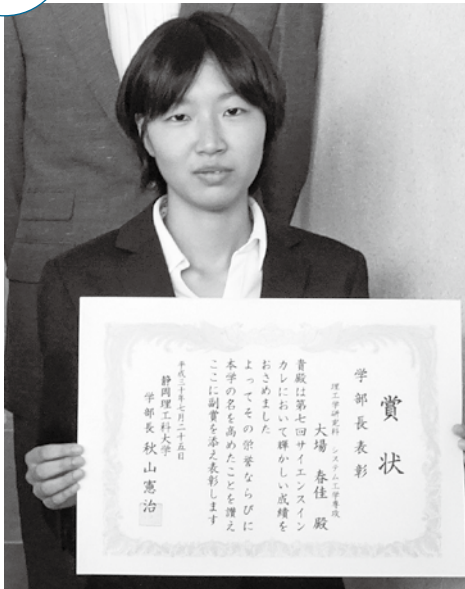 賞状
学部長表彰
理工学研究科 システム工学専攻
大場 春佳 殿
貴殿は第七回サイエンスイン
カレにおいて輝かしい成績を
おさめました
よってその栄誉ならびに
本学の名を高めたことを讃え
ここに副賞を添え表彰します
平成三十年七月二十五日
静岡理工科大学
学部長 秋山憲治